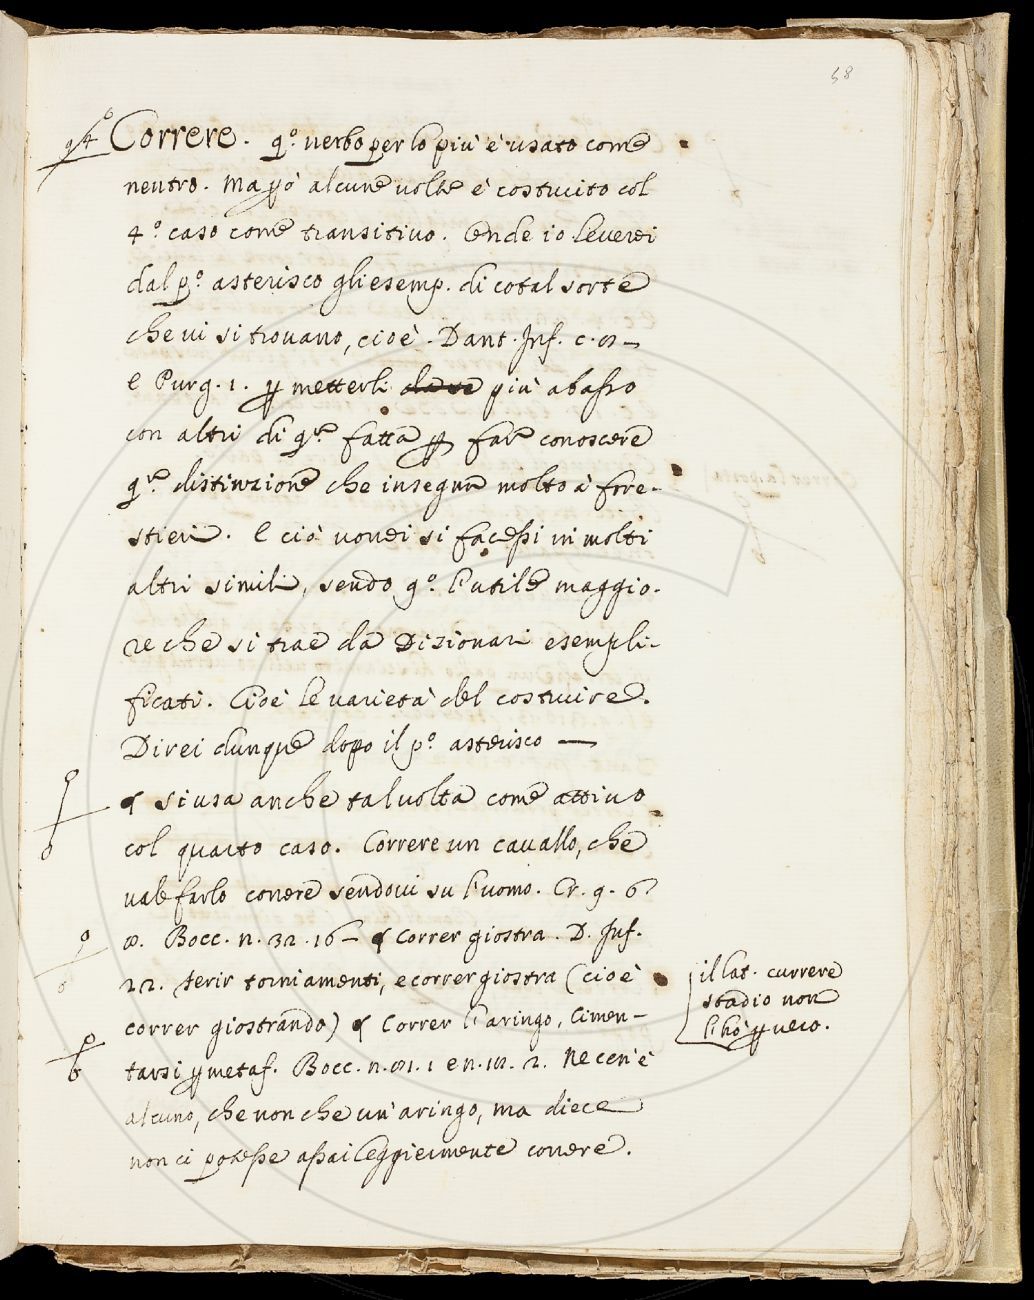 58
Correre. q.º verbo per lo più è usato come
neutro. Ma però alcune volte è costruito col
4.º caso come transitivo. Onde io leverei
dal p.º asterisco gli esemp. di cotal sorte
che vi si trovano, cioè. Dant. Inf. c.
e Purg. 1. metterli più abasso
con altri di q.ta fatta far conoscere
q.ta distinzione che insegna molto a' fore-
stieri. E ciò vorrei si facessi in molti
altri simili, sendo q.º l'utile maggio-
re che si trae da Dizionari esempli-
ficati. Cioè le varietà del costruire.
Direi dunque dopo il p.º asterisco —
si usa anche talvolta come attivo
col quarto caso. Correre un cavallo, che
vale farlo correre sendovi su l'uomo. Cr. 9. 6.
Bocc. n. 32. 16 — Correr giostra. D. Inf.
22. ferir torniamenti, e correr giostra (cioè
correr giostrando) Correr l'aringo, Cimen-
tarsi metaf. Bocc. n. 1 e n. 2. Ne cen'è
alcuno, che non che un'aringo, ma diece
non ci potesse assai leggiermente correre.
il lat. currere
stadio non
l'ho vero.